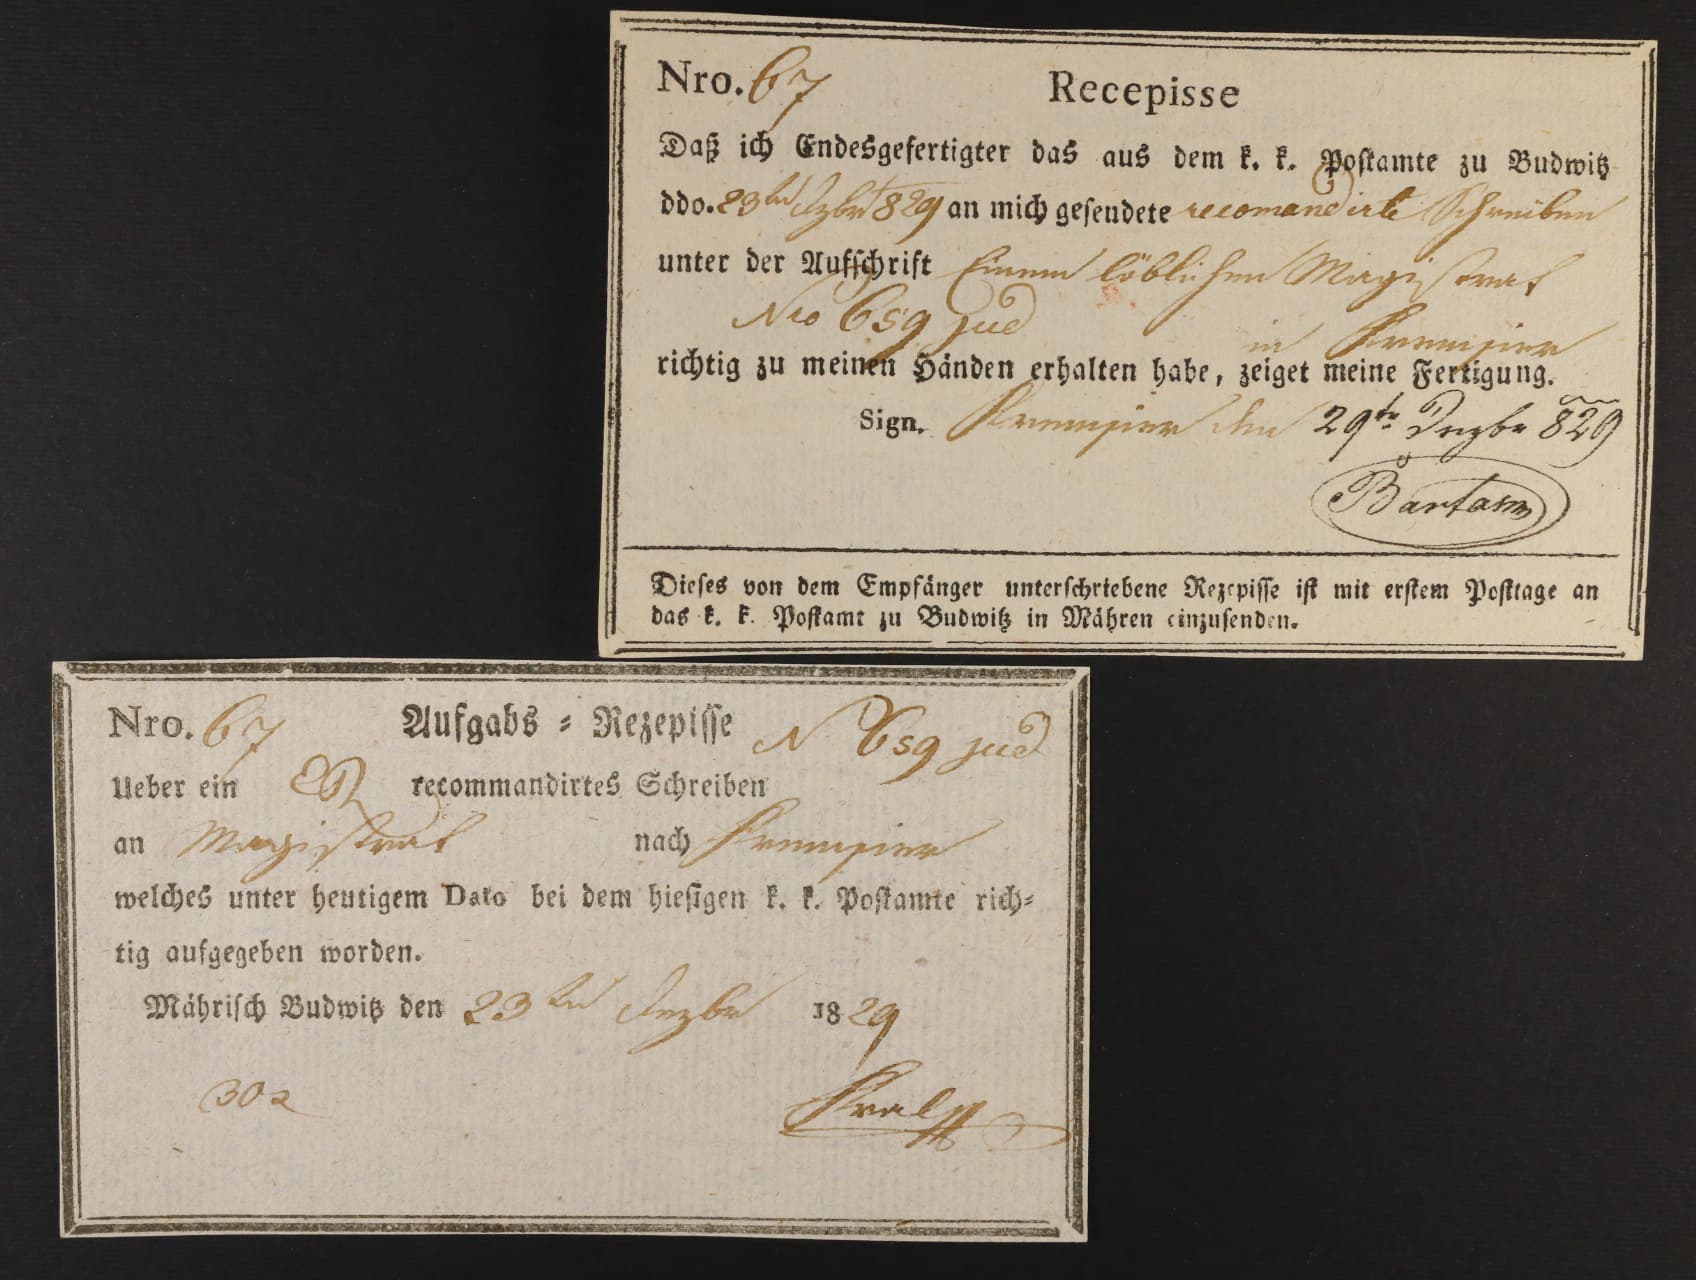 Nro. 67 Recepisse
Daß ich Endesgefertigter das aus dem k. k. Postamte zu Budwitz
ddo. 23ten Dezbr 829 an mich gesendete recomandirte Schreiben
unter der Aufschrift Einem löblichen Magistrat
Nro 659 jud in Kremsier
richtig zu meinen Händen erhalten habe, zeiget meine Fertigung.
Sign. Kremsier den 29tn Dezbr 829
Dieses von dem Empfänger unterschriebene Rezepisse ist mit erstem Posttage an
das k. k. Postamt zu Budwitz in Mähren einzusenden.
Nro. 67 Aufgabs = Rezepisse N 659 jud
Ueber ein recommandirtes Schreiben
an Magistrat nach Kremsier
welches unter heutigem Dato bei dem hiesigen k. k. Postamte rich=
tig aufgegeben worden.
Mährisch Budwitz den 23ten Dezbr 1829
Kral